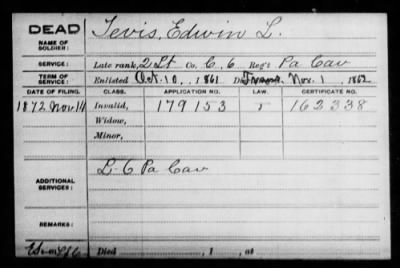 DEAD
NAME OF SOLDIER: Tevis, Edwin L.
SERVICE: Late rank, 2 Lt Co. C, 6 Reg't Pa Cav
TERM OF SERVICE: Enlisted Oct. 10, 1861 Nov. 1, 1862
DATE OF FILING. CLASS. APPLICATION NO. LAW. CERTIFICATE NO.
1872 Nov 14 Invalid, 179153 162338
Widow,
Minor,
ADDITIONAL SERVICES: L 6 Pa Cav
REMARKS:
Died , 1 , at